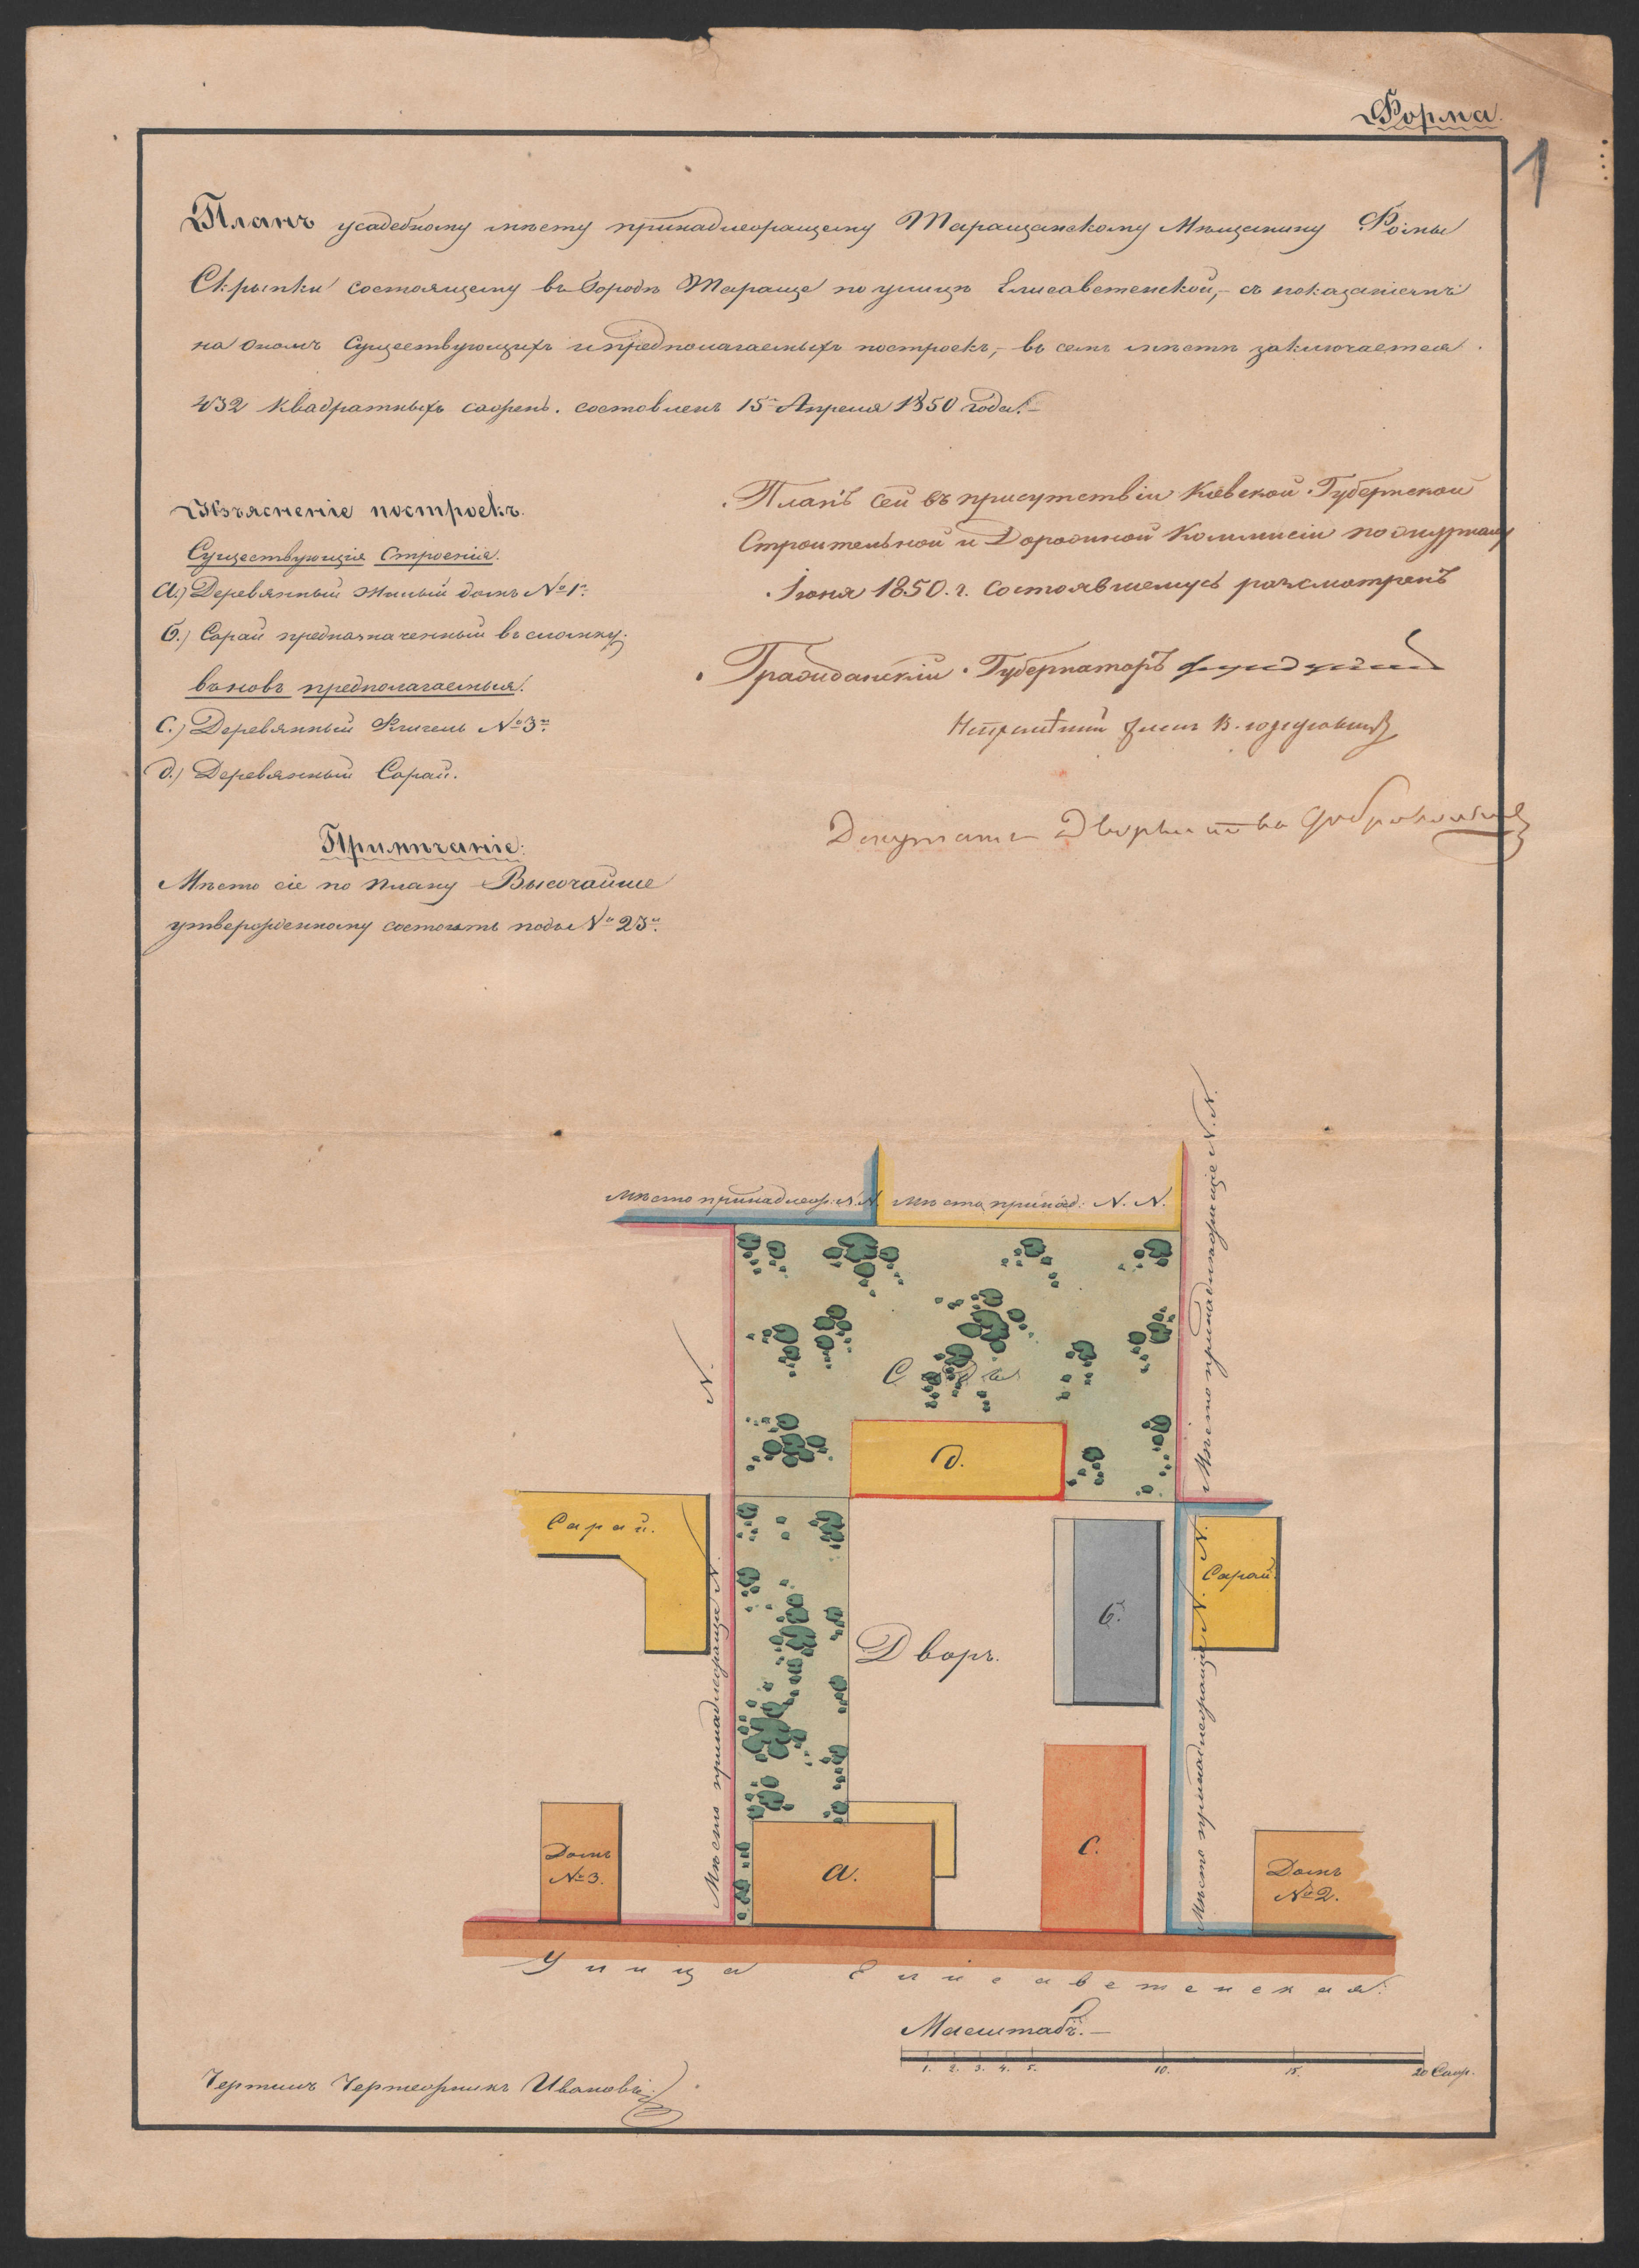 Форма.
1
Планъ усадебному мѣсту принадлежащему Таращанскому Мѣщанину Фомы
Скрыпки состоящему въ Городѣ Тараще по улицѣ Елисаветенской,- съ показаніемъ
на ономъ Существующихъ и предполагаемыхъ построекъ,- въ семъ мѣстѣ заключается
432 квадратныхъ сажень. составленъ 15го Апреля 1850 года.-
Изъясненіе построекъ.
Существующія Строенія.
а.) Деревянный Жилый домъ №1й.
б.) Сарай предназначенный въ сломку.
въновь предполагаемыя.
С.) Деревянный Флигель №3й.
д.) Деревянный Сарай.
Примѣчаніе:
Мѣсто сіе по плану Высочайше
утвержденному состоитъ подъ №23й.
Планъ сей въ присутствіи Кіевской Губернской
Строительной и Дорожной Коммисіи по журналу
Іюня 1850. г. состоявшемуся разсмотренъ
Гражданскій Губернаторъ
Депутатъ Дворянства
Мѣсто принадлеж: N.N.
Мѣсто принад: N. N.
Мѣсто принадлежащіе N. N.
С а д ъ
д.
Сарай.
б.
Сарай.
Дворъ.
Мѣсто принадлежаща N. N.
Мѣсто принадлежаща N. N.
Домъ
№3.
а.
С.
Домъ
№2.
Улица Елисаветенская.
Масштабъ.-
1. 2. 3. 4. 5. 10. 15. 20 Саж.
Чертилъ Чертежникъ Ивановъ